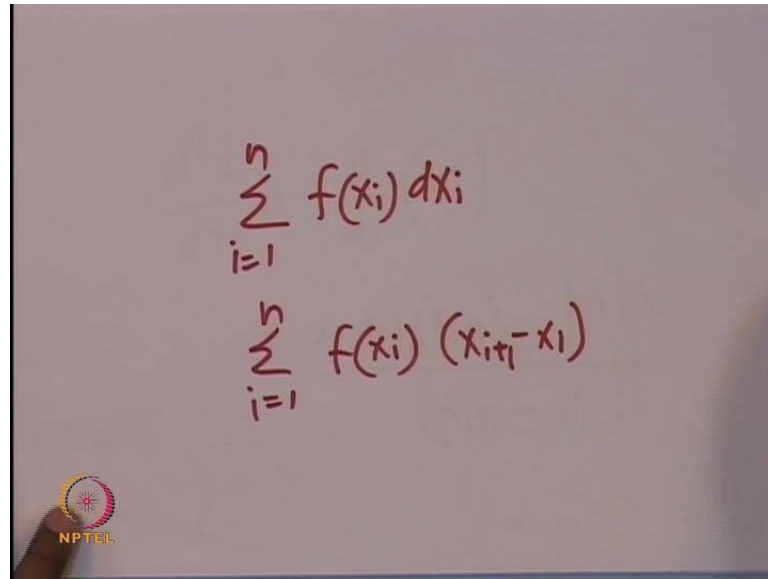 n
∑ f(xi) dxi
i=1
n
∑ f(xi) (xi+1 - x1)
i=1
NPTEL